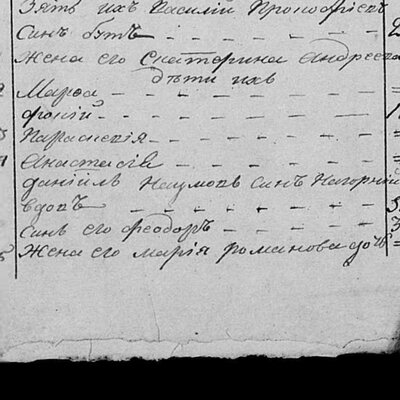 Зять ихъ Василій Прокофіевъ
Сынъ
Жена его Екатерина Андреева
дѣти ихъ
Марѳа
Параскевія
Анастасія
Даніилъ Наумовъ сынъ Нагорній
вдовъ
5
Сынъ его Феодоръ
3
Жена его Марія Романова дочь